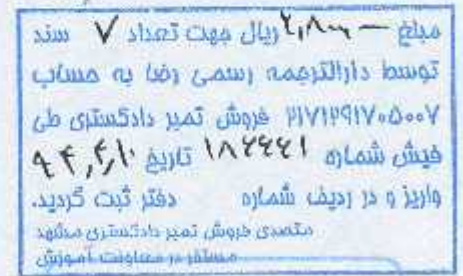 مبلغ ۲,۸۰۰,۰۰۰ ریال جهت تعداد ۷ سند
توسط دارالترجمه رسمی رضا به حساب
۲۱۷۱۲۹۱۷۰۵۰۰۷ فروش تمبر دادگستری طی
فیش شماره ۱۸۲۶۶۱ تاریخ ۹۴,۴,۱۰
واریز و در ردیف شماره دفتر ثبت گردید.
متصدی فروش تمبر دادگستری مشهد
مستقر در معاونت آموزش